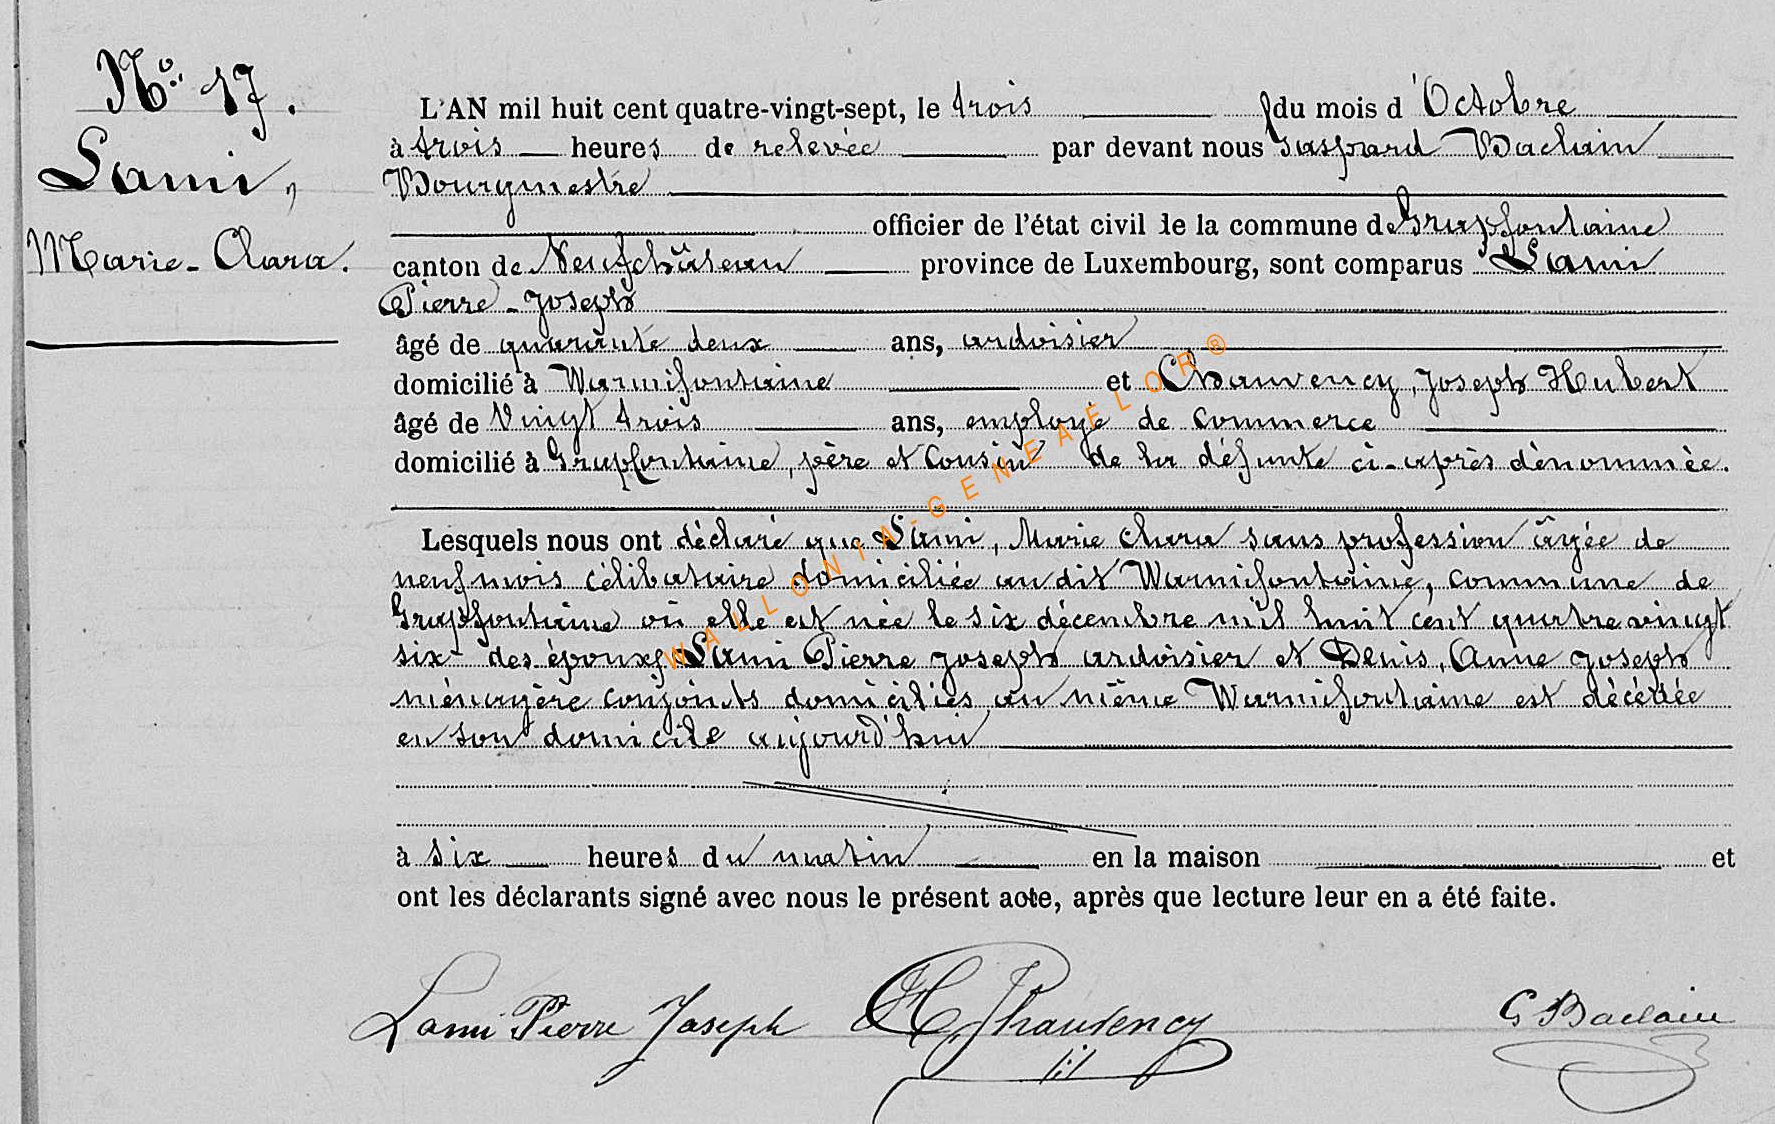 No. 17.
Lami,
Marie-Clara.
L'AN mil huit cent quatre-vingt-sept, le trois du mois d'Octobre
à trois heures de relevée par devant nous Gaspard Baclain
Bourgmestre
officier de l'état civil de la commune de Grapfontaine
canton de Neufchâteau province de Luxembourg, sont comparus Lami
Pierre-Joseph
âgé de quarante deux ans, ardoisier
domicilié à Warmifontaine et Chauvency, Joseph Hubert
âgé de Vingt trois ans, employé de commerce
domicilié à Grapfontaine, père et Cousin de la défunte ci-après dénommée.
Lesquels nous ont déclaré que Lami, Marie Clara sans profession âgée de
neuf mois célibataire domiciliée au dit Warmifontaine, commune de
Grapfontaine où elle est née le six décembre mil huit cent quatre vingt
six des époux Lami Pierre Joseph ardoisier et Denis, Anne Joseph
ménagère conjoints domiciliés au même Warmifontaine est décédée
en son domicile aujourd'hui
à six heures du matin en la maison et
ont les déclarants signé avec nous le présent acte, après que lecture leur en a été faite.
Lami Pierre Joseph Chauvency G Baclain
WALLONIA-GENEAELOR®